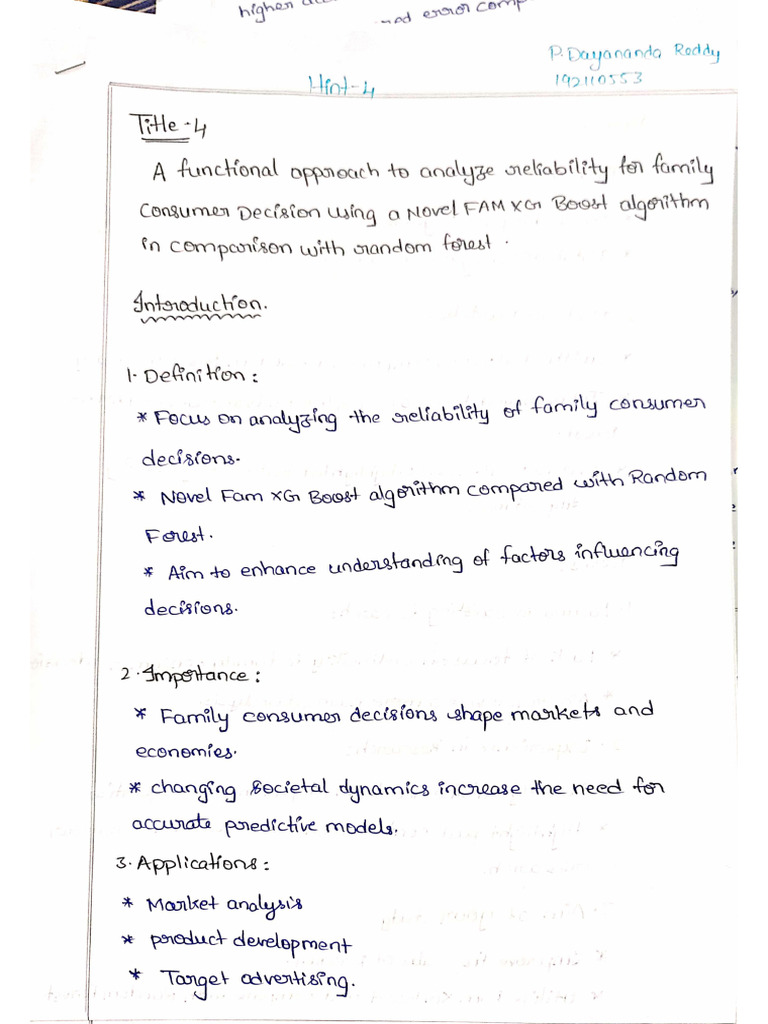 higher
and error comp
P. Dayananda Reddy
192110553
Hint-4
Title-4
A functional approach to analyze reliability for family
Consumer Decision using a Novel FAM XG Boost algorithm
in comparison with random forest.
Introduction.
1. Definition:
* Focus on analyzing the reliability of family consumer
decisions.
* Novel Fam XG Boost algorithm compared with Random
Forest.
* Aim to enhance understanding of factors influencing
decisions.
2. Importance:
* Family consumer decisions shape markets and
economies.
* changing societal dynamics increase the need for
accurate predictive models.
3. Applications:
* Market analysis
* product development
* Target advertising.